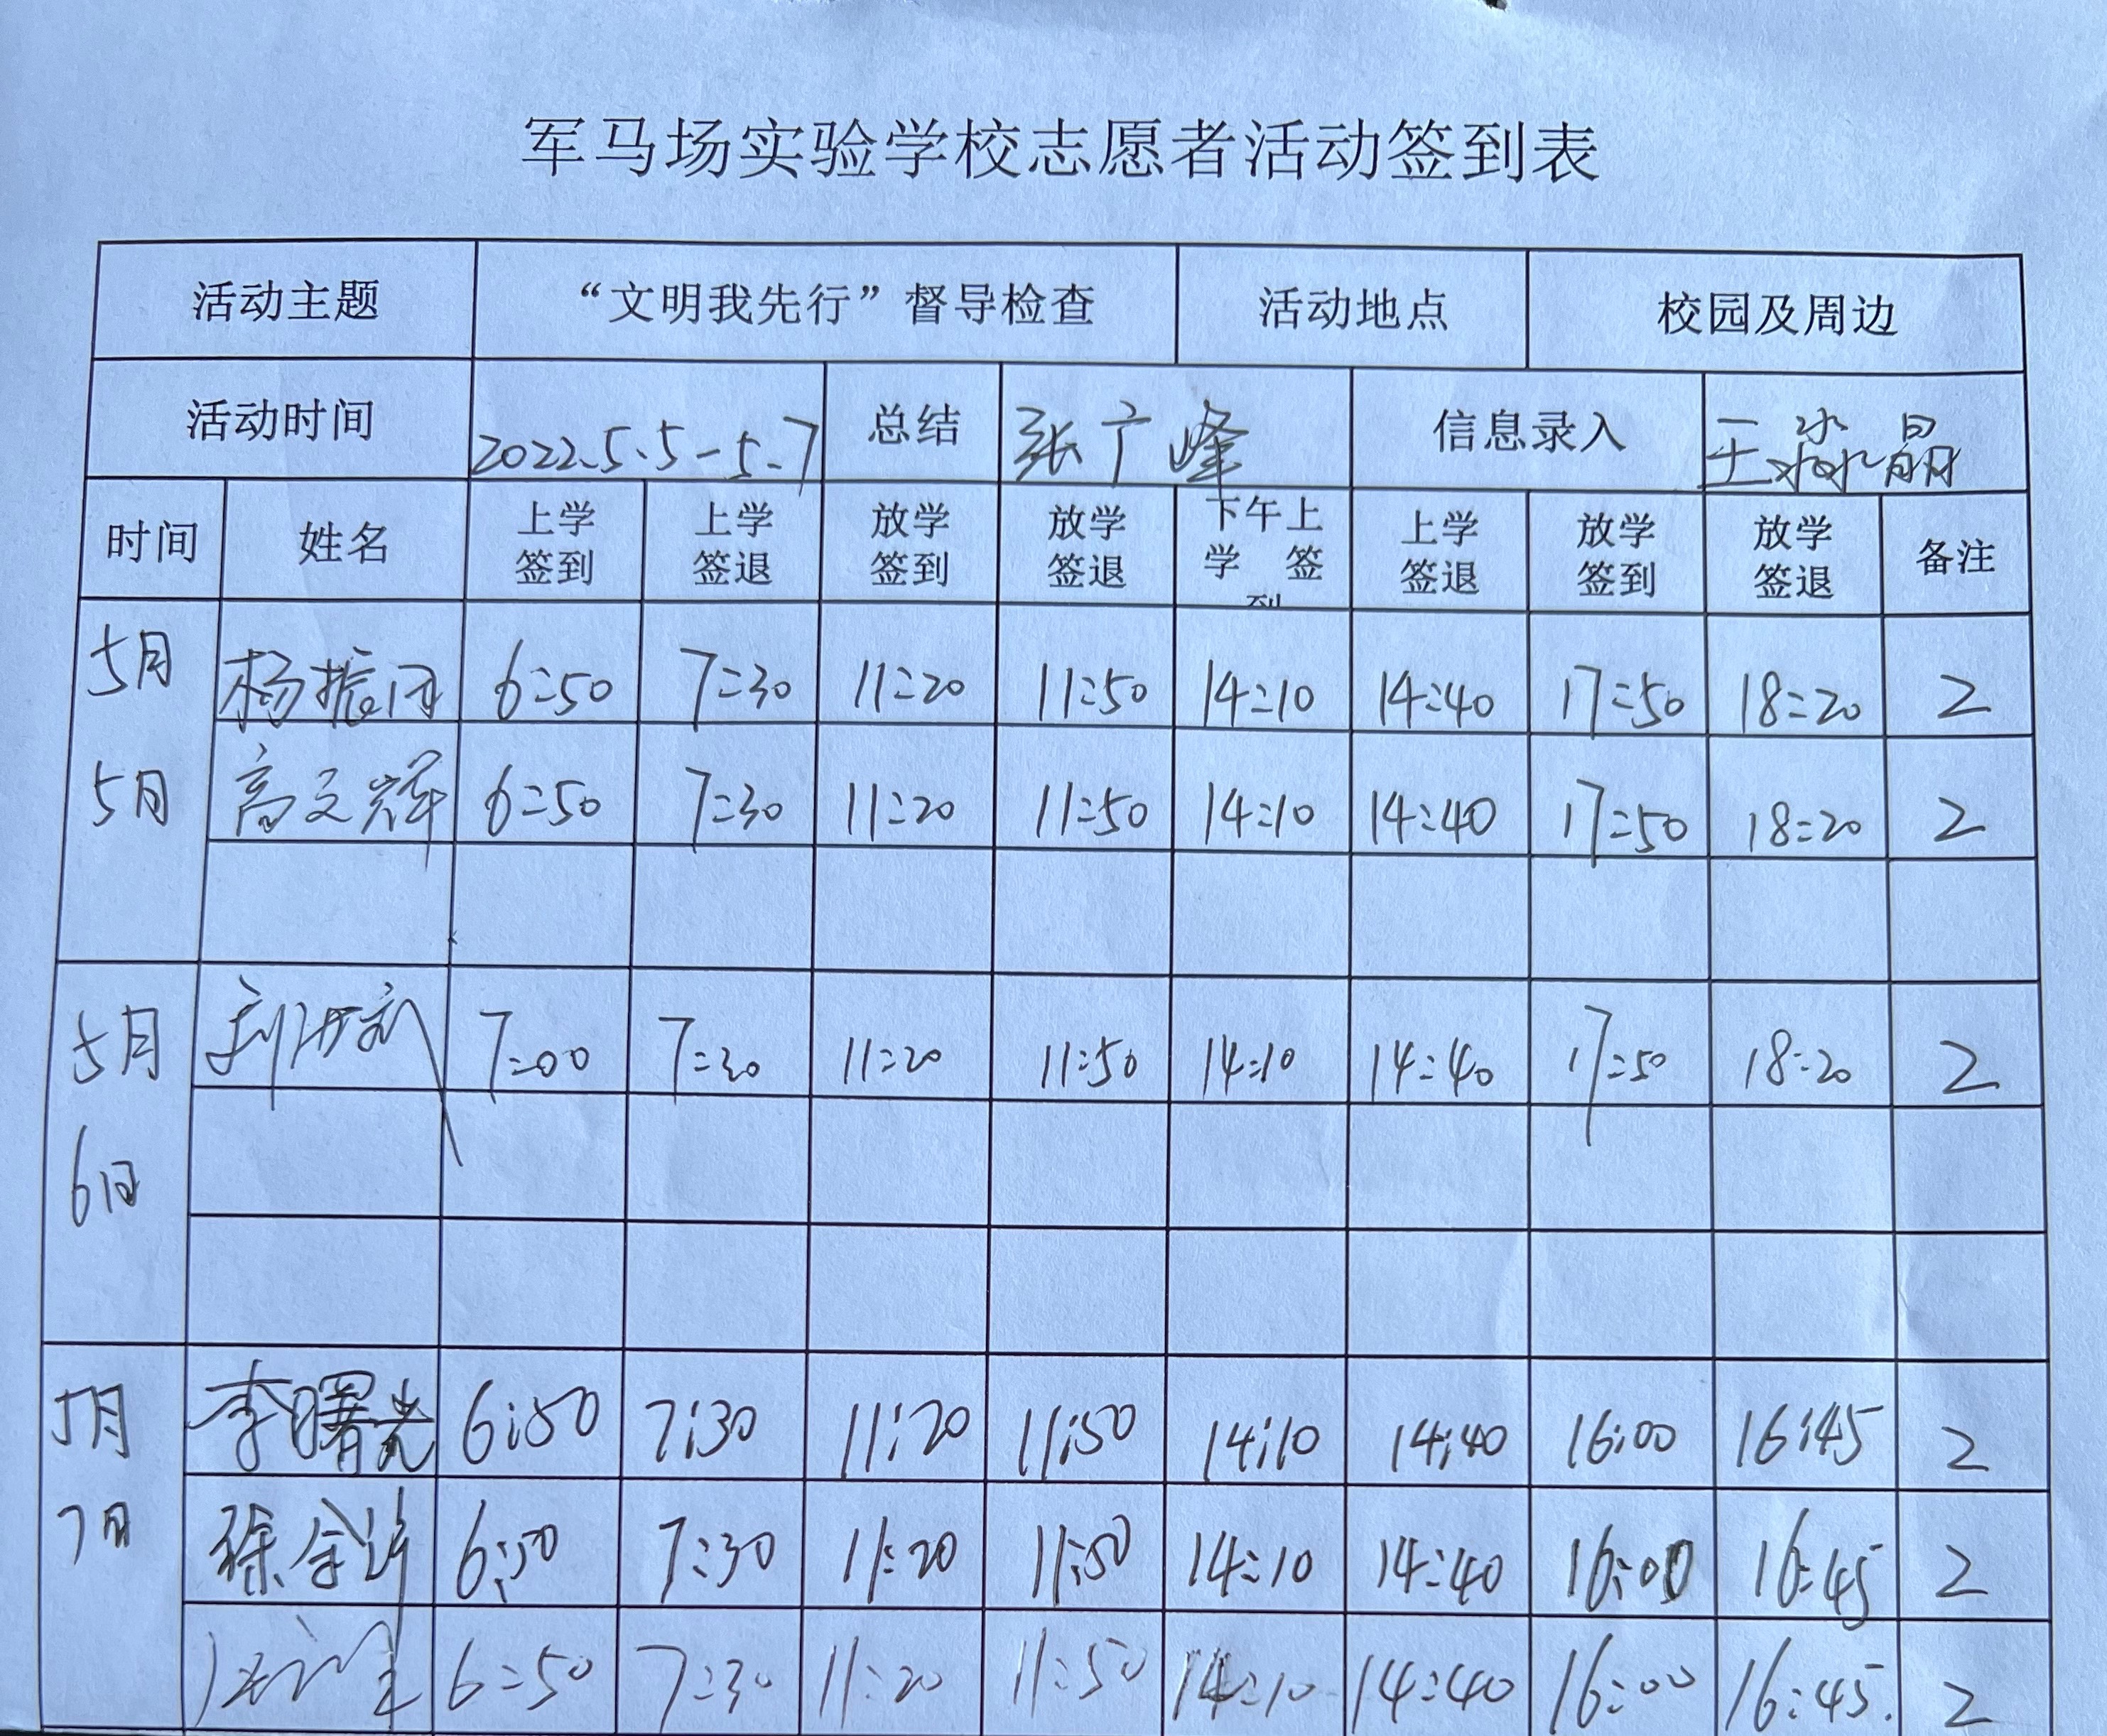 军马场实验学校志愿者活动签到表
活动主题 “文明我先行”督导检查 活动地点 校园及周边
活动时间 2022.5.5-5.7 总结 张广峰 信息录入 王淼晶
时间 姓名 上学签到 上学签退 放学签到 放学签退 下午上学 签到 上学签退 放学签到 放学签退 备注
5月 杨振 6:50 7:30 11:20 11:50 14:10 14:40 17:50 18:20 2
5月 高文辉 6:50 7:30 11:20 11:50 14:10 14:40 17:50 18:20 2
5月 刘 7:00 7:30 11:20 11:50 14:10 14:40 17:50 18:20 2
6日
5月 李曙光 6:50 7:30 11:20 11:50 14:10 14:40 16:00 16:45 2
7日 徐金 6:50 7:30 11:20 11:50 14:10 14:40 16:00 16:45 2
6:50 7:30 11:20 11:50 14:10 14:40 16:00 16:45. 2